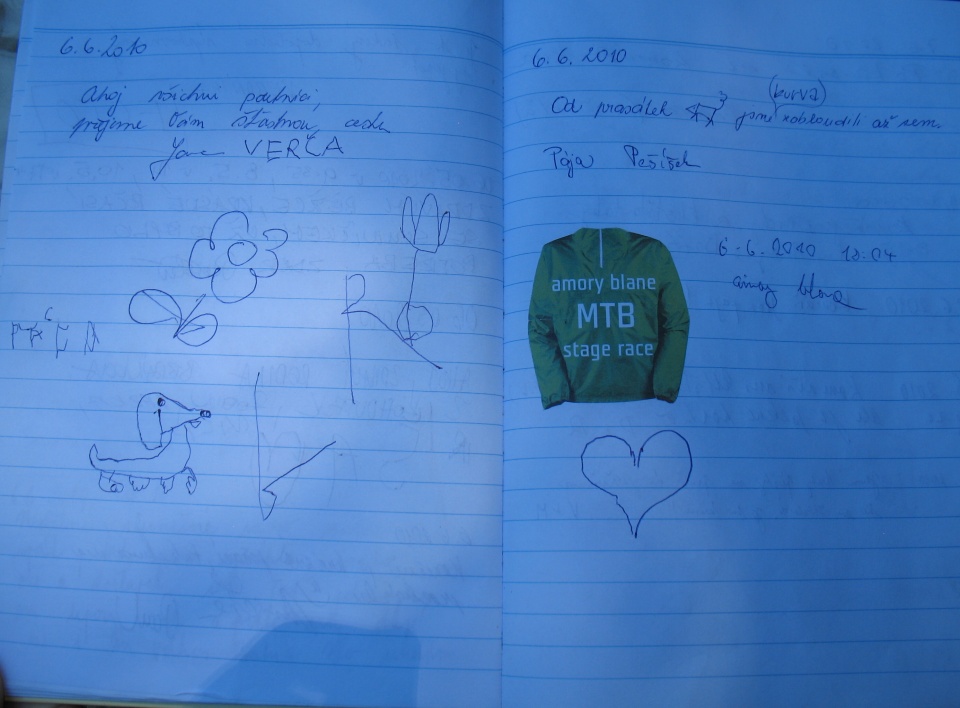 6.6.2010
Ahoj všichni poutníci,
přejeme Vám šťastnou cestu
Jana VERČA
R
6. 6. 2010
(kurva)
Od prasátek jsme zabloudili až sem.
Pája Pešíšek
6.6.2010 18:04
amory blane
MTB
stage race